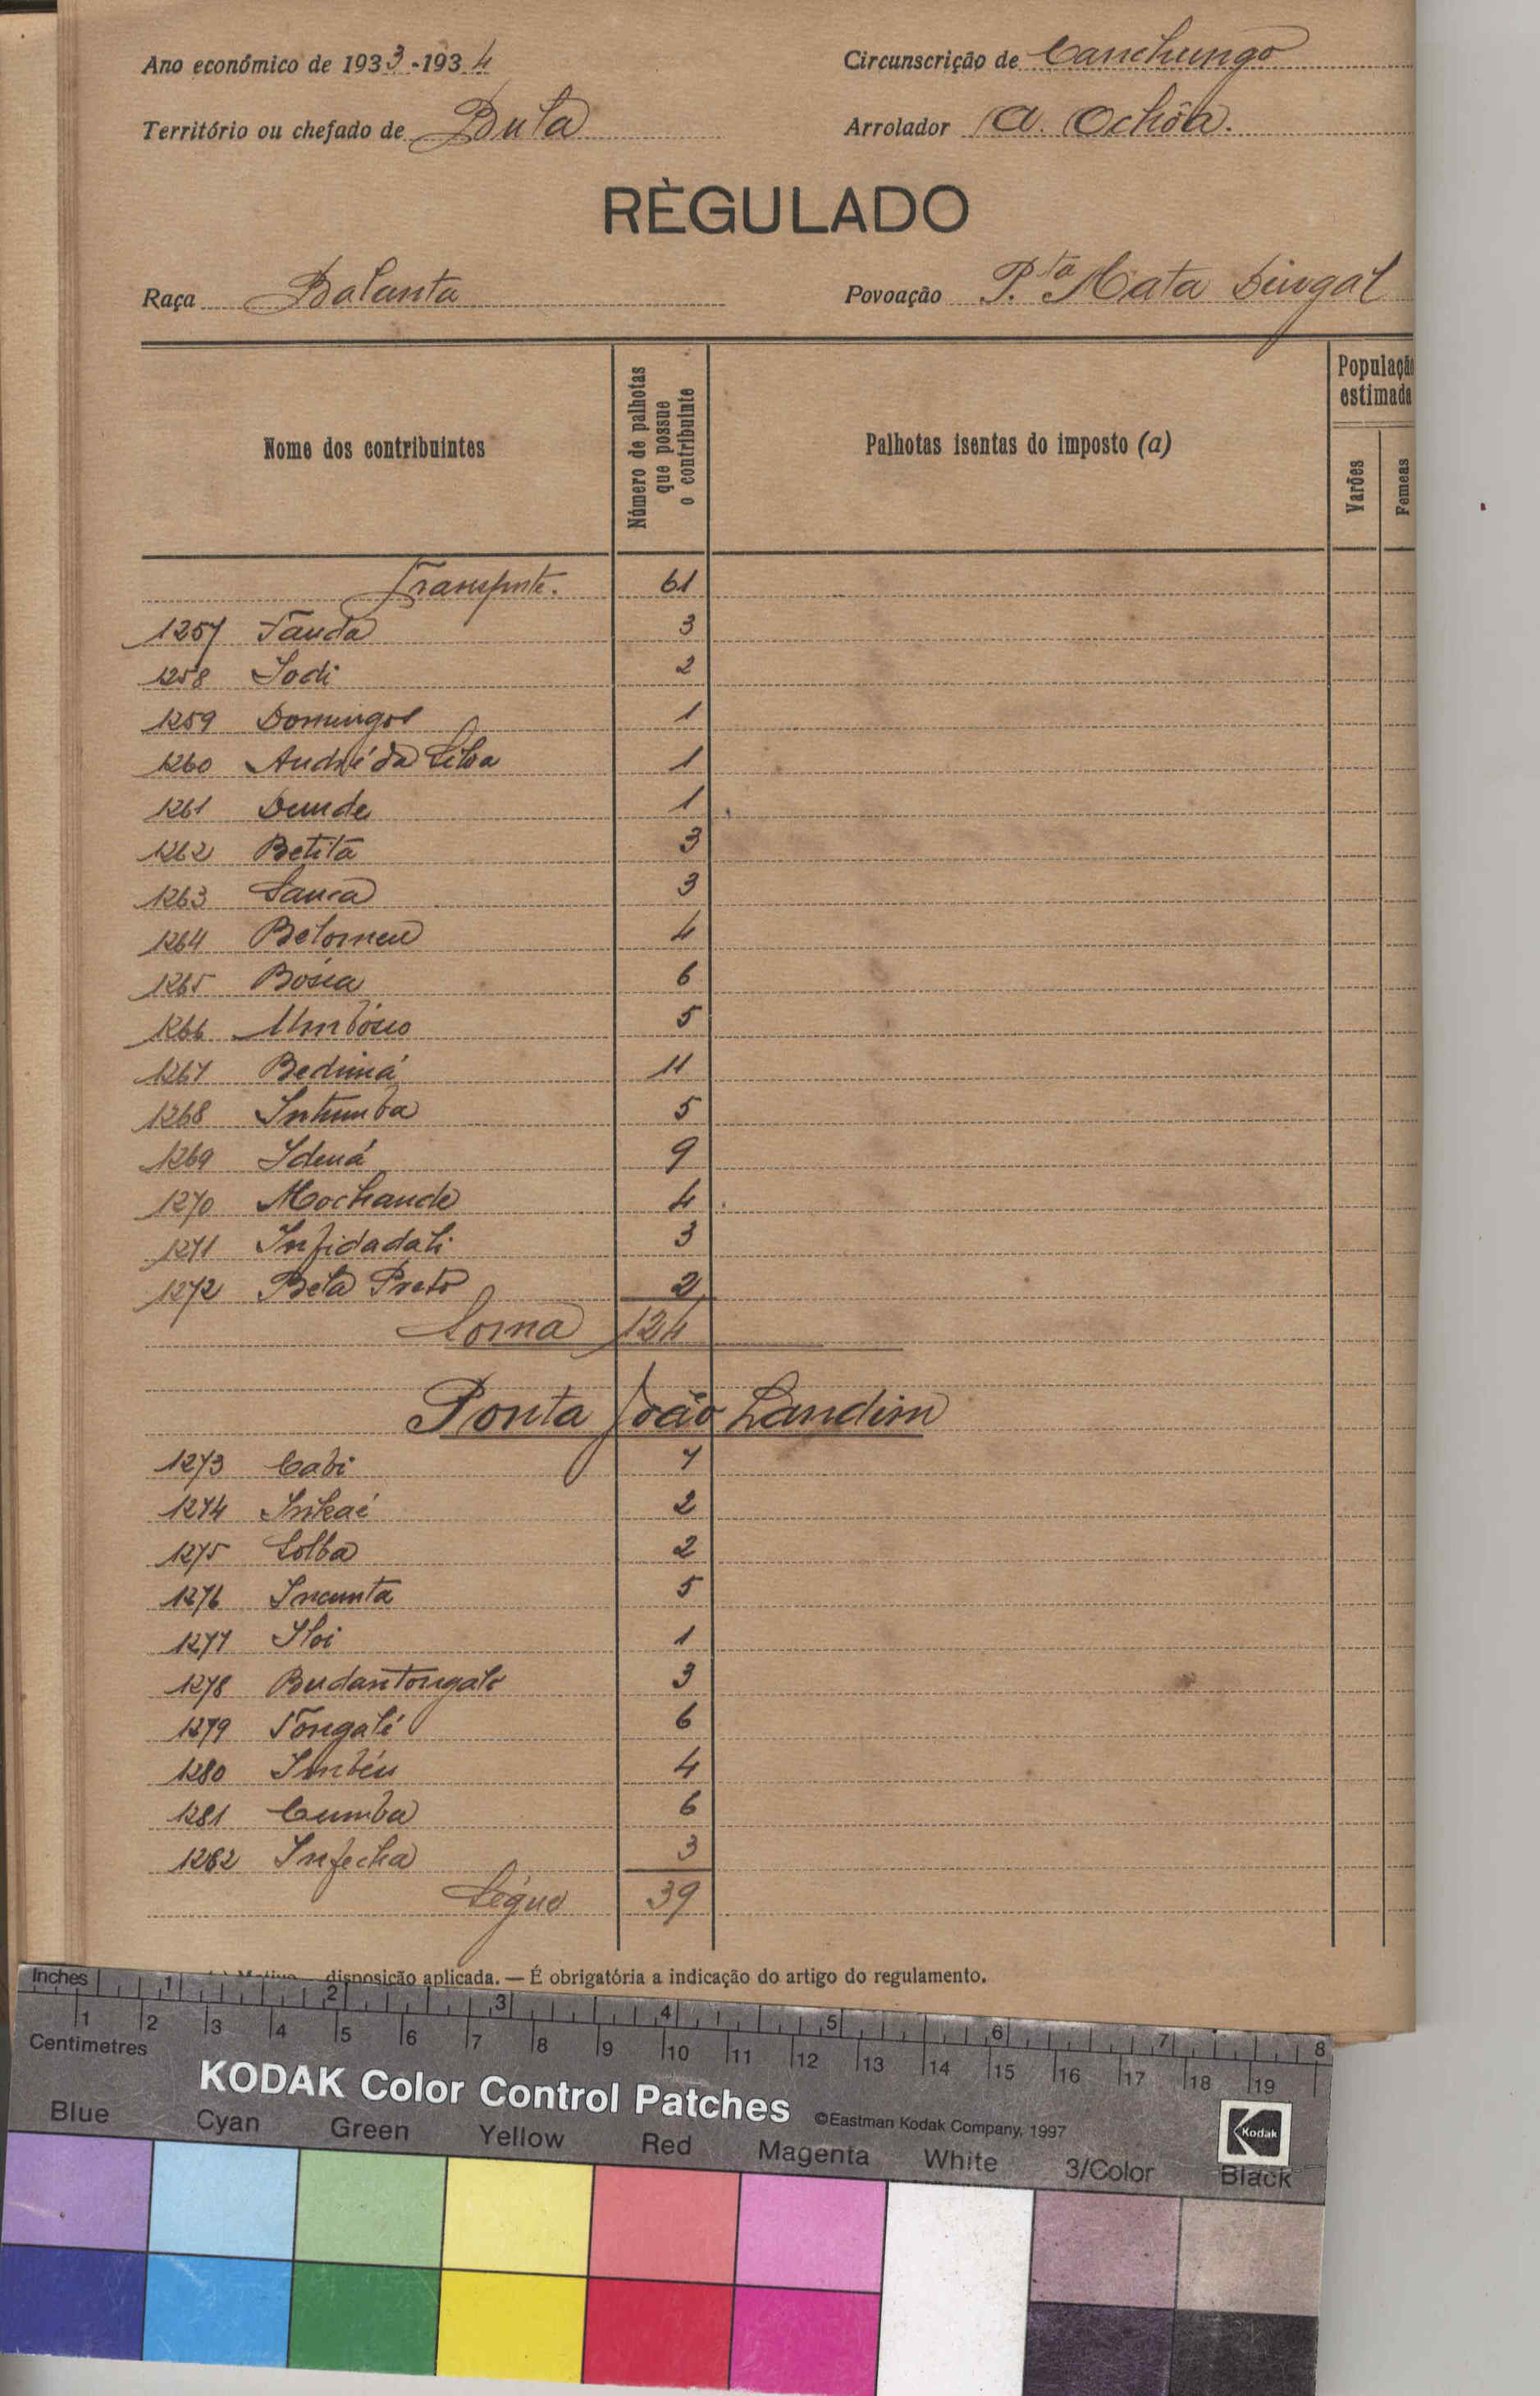 Ano económico de 1933-1934
Circunscrição de Canchungo
Território ou chefado de Bula
Arrolador A. Ochôa.
RÈGULADO
Raça Balanta
Povoação P.ta Mata Dingal
Nome dos contribuintes
Número de palhotas que possue o contribuinte
Palhotas isentas do imposto (a)
População estimada
Varões
Femeas
Transporte. 61
1257 Tauda 3
1258 Sodi 2
1259 Domingos 1
1260 André da Silva 1
1261 Dunde 1
1262 Betita 3
1263 Sanca 3
1264 Belomeu 4
1265 Bósca 6
1266 Umbósco 5
1267 Bedimá 11
1268 Intumba 5
1269 Idená 9
1270 Mochande 4
1271 Infidadali 3
1272 Beta Preto 2
Soma 124
Ponta João Landim
1273 Cabi 7
1274 Inkaé 2
1275 Solba 2
1276 Incunta 5
1277 Iloi 1
1278 Budantongalo 3
1279 Tongalé 6
1280 Imbéu 4
1281 Cumba 6
1282 Infecha 3
Ségue 39
disposição aplicada. — É obrigatória a indicação do artigo do regulamento.
Inches 1 2 3 4 5 6 7 8
1 2 3 4 5 6 7 8 9 10 11 12 13 14 15 16 17 18 19
Centimetres
KODAK Color Control Patches
©Eastman Kodak Company, 1997
Kodak
Blue Cyan Green Yellow Red Magenta White 3/Color Black